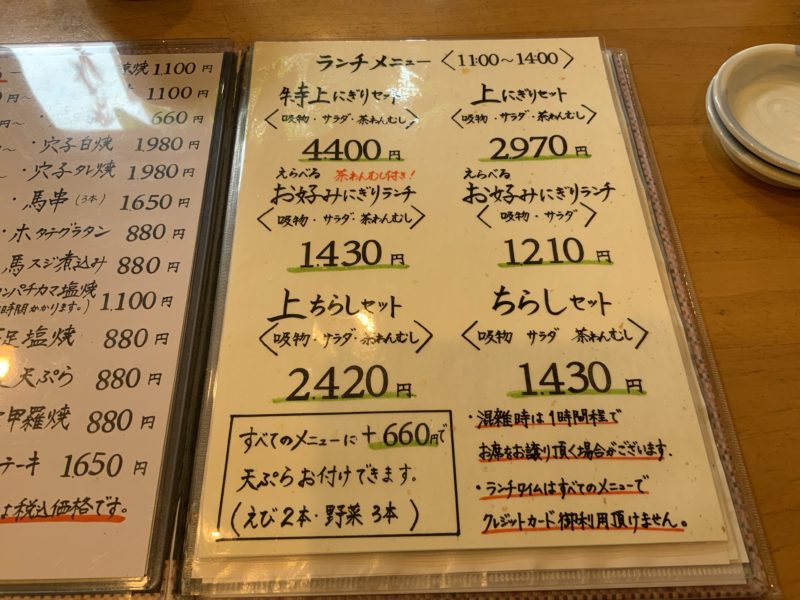 焼 1.100円
1.100円
660円
・穴子白焼 1.980円
・穴子タレ焼 1.980円
・馬串(3本) 1650円
・ホタテグラタン 880円
馬スジ煮込み 880円
ンパチカマ塩焼
時間かかります。) 1.100円
足塩焼 880円
天ぷら 880円
甲羅焼 880円
テーキ 1650円
税込価格です。
ランチメニュー〈11:00~14:00〉
特上にぎりセット
〈吸物・サラダ・茶わんむし〉
4400円
上にぎりセット
〈吸物・サラダ・茶わんむし〉
2970円
えらべる 茶わんむし付き!
お好みにぎりランチ
〈吸物・サラダ・茶わんむし〉
1430円
えらべる
お好みにぎりランチ
〈吸物・サラダ〉
1210円
上ちらしセット
〈吸物・サラダ・茶わんむし〉
2.420円
ちらしセット
〈吸物 サラダ 茶わんむし〉
1430円
すべてのメニューに+660円で
天ぷらお付けできます。
(えび2本・野菜3本)
・混雑時は1時間程で
お席をお譲り頂く場合がございます.
・ランチタイムはすべてのメニューで
クレジットカード御利用頂けません。